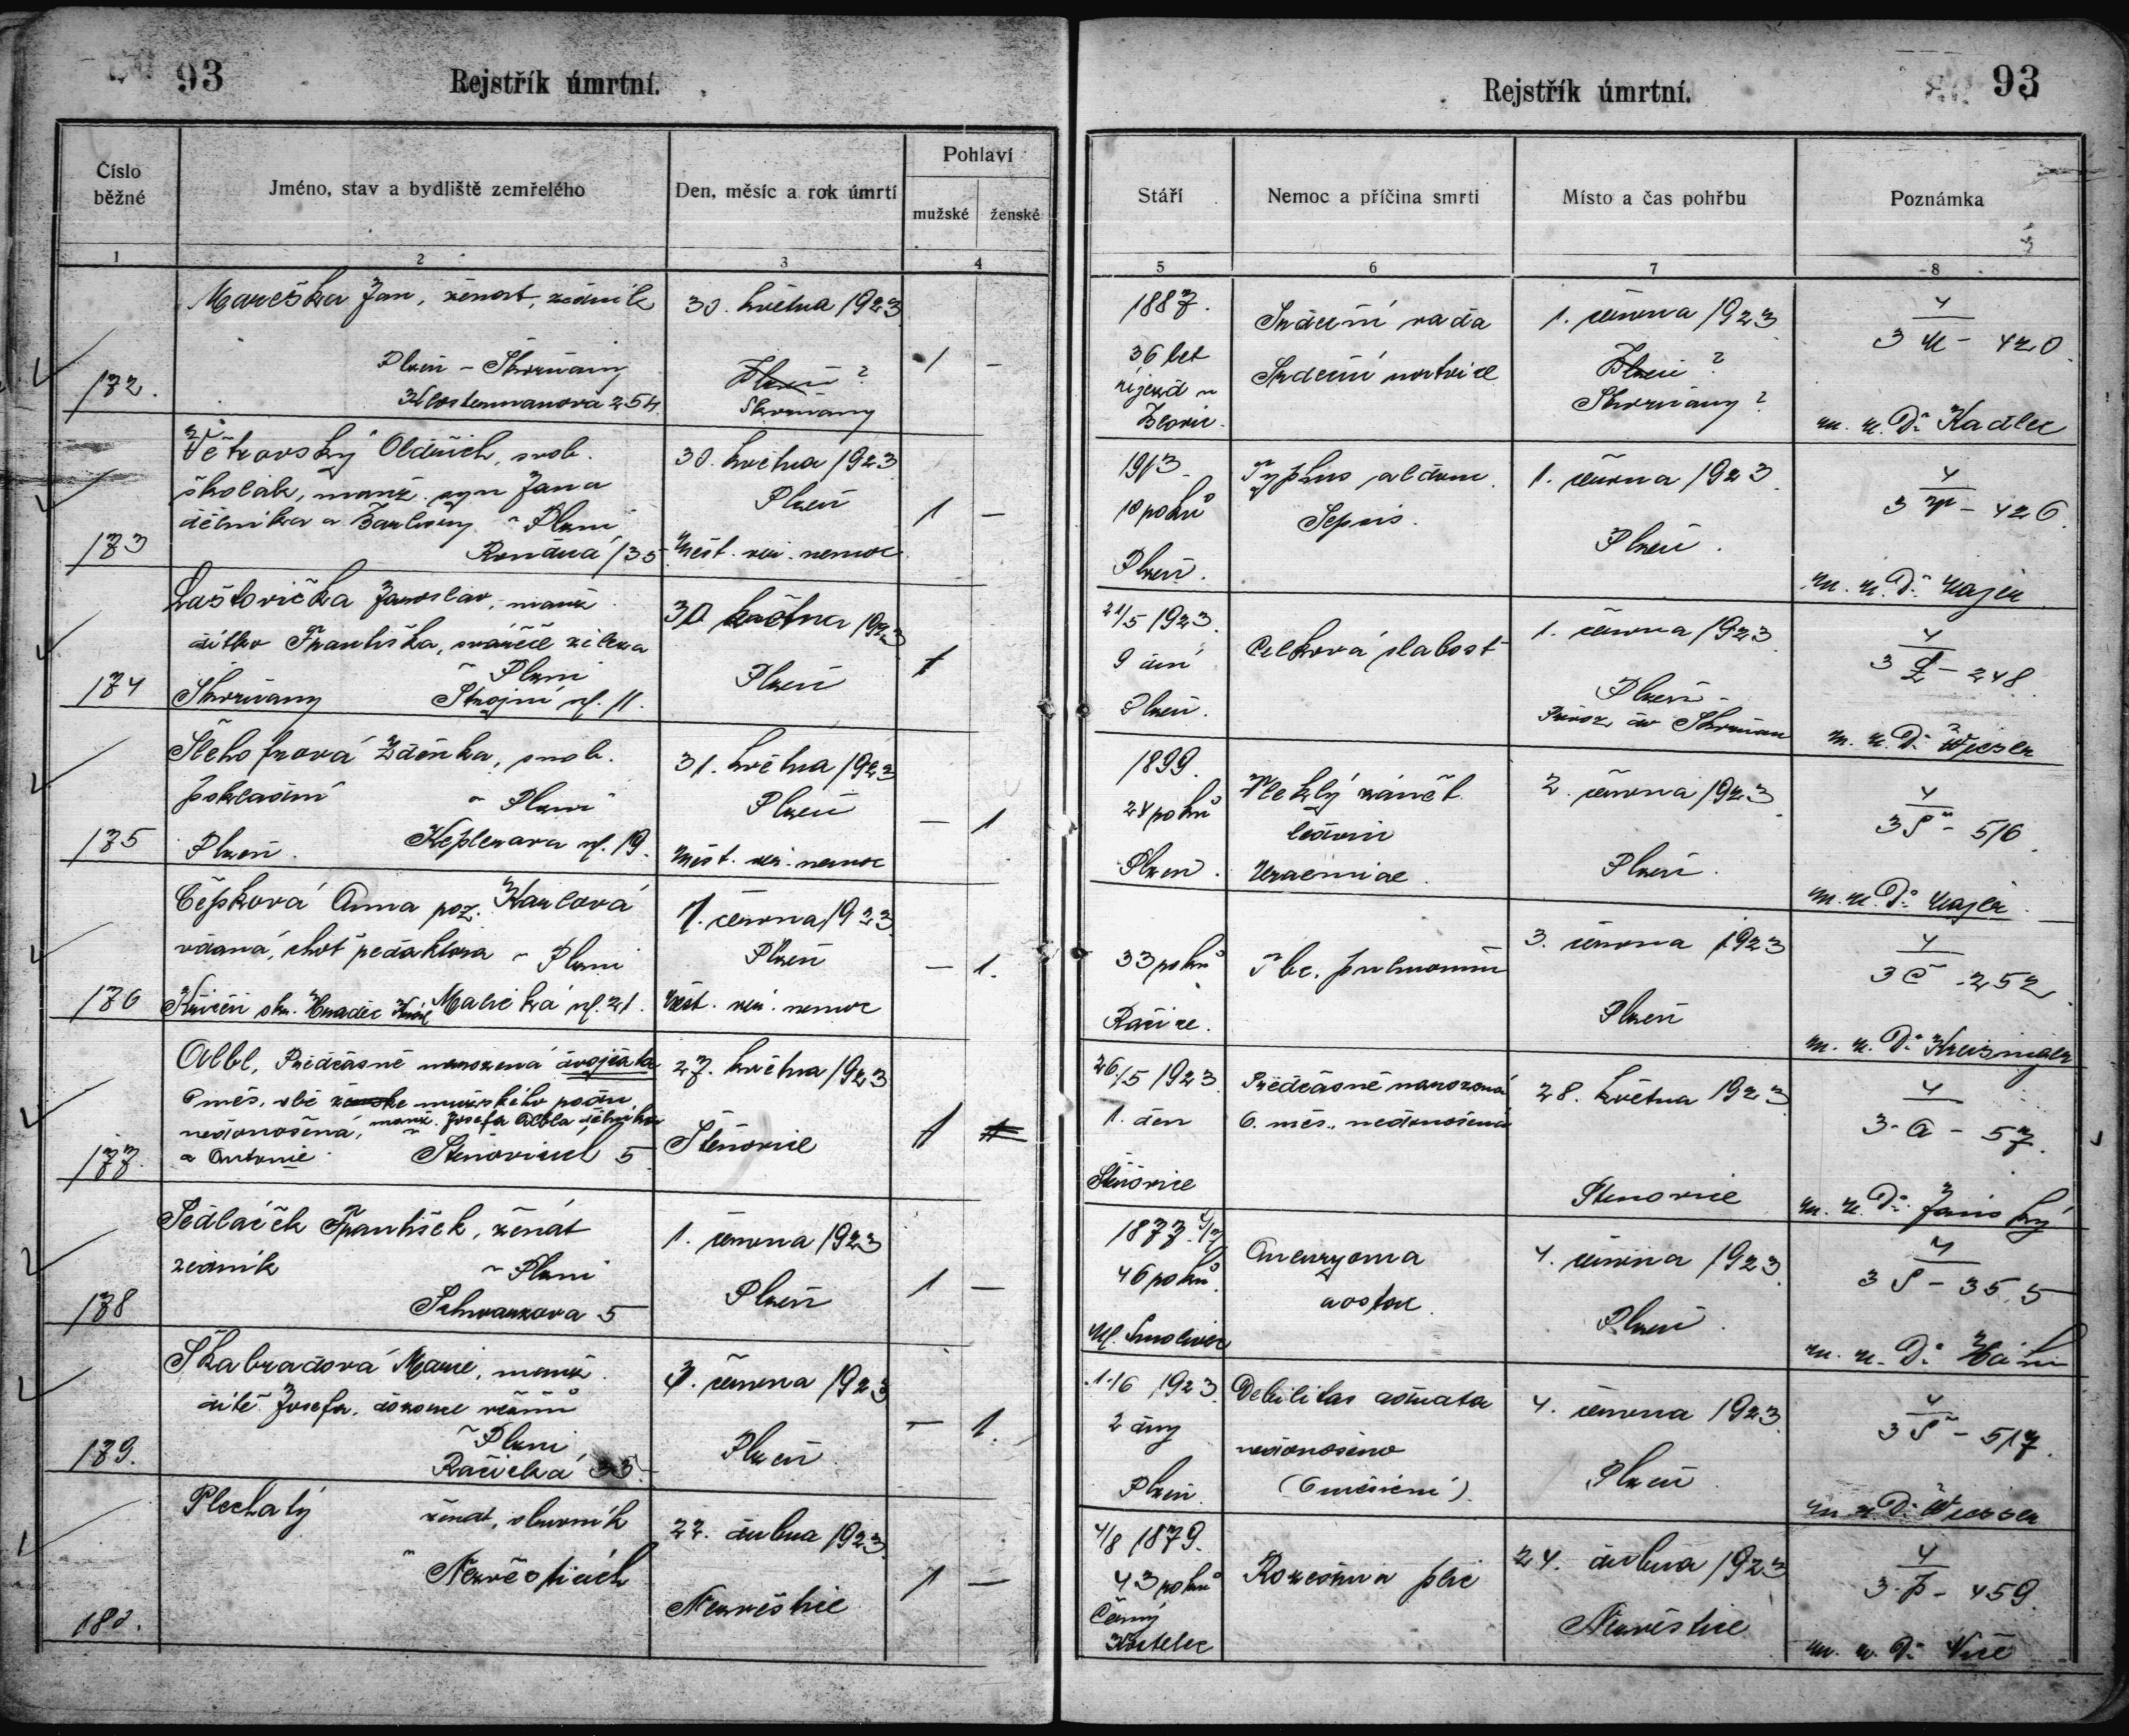 93
Rejstřík úmrtní.
Číslo běžné
Jméno, stav a bydliště zemřelého
Den, měsíc a rok úmrtí
Pohlaví
mužské
ženské
1
2
3
4
Rejstřík úmrtní.
93
Stáří
Nemoc a příčina smrti
Místo a čas pohřbu
Poznámka
5
6
7
8
172.
Mareška Jan, ženat, zedník
Plzeň - Skvrňany
Klostermanova 254
30. května 1923
Plzeň ?
Skvrňany
1 -
1887.
36 let
Srdeční vada
Srdeční mrtvice
1. června 1923
Plzeň ?
Skvrňany ?
4
3 M - 420
m. u. Dr Kadlec
173
Větrovský Oldřich, svob.
školák, manž. syn Jana
dělníka a Barbory v Plzni
Rondná 135
30. května 1923
Plzeň
Měst. vš. nemoc
1 -
1913
10 roků
Plzeň.
Typhus abdom.
Sepsis.
1. června 1923
Plzeň.
4
426
m. u. Dr Majer
174
Laštovička Jaroslav, manž.
dítko Františka, sváreče železa
v Plzni
Skvrňany Strojní ul. 11.
30 května 1923
Plzeň
1
21/5 1923.
9 dní
Plzeň.
Celková slabost
1. června 1923
Plzeň -
Převoz do Skvrňan
4
3 L - 248
m. u. Dr
175
Zdenka, svob.
pokladní v Plzni
Plzeň. Keplerova ul. 19.
31. května 1923
Plzeň
Měst. vš. nemoc
- 1
1899.
24 roků
Plzeň.
Vleklý zánět
ledvin
Uraemiae.
2. června 1923
Plzeň.
4
3 Š - 516
m. u. Dr Majer.
176
Čepková Anna roz. Karlová
vdaná, choť redaktora v Plzni
Hradec Králové Malická ul. 21.
1. června 1923
Plzeň
Měst. vš. nemoc
- 1.
33 roků
Račice.
Tbc. pulmonum
3. června 1923
Plzeň
4
3 Č - 252
m. u. Dr
177.
Albl, Předčasně narozená dvojčata
6 měs. obě ženské mužského podu,
nedonošená, manž. Josefa Albla dělníka
a Antonie v Štěnovicích 5
27. května 1923
Štěnovice
1 1
26/5 1923
1. den
Štěnovice
Předčasně narozená
6. měs., nedonošená
28. května 1923
Štenovice
4
3. A - 57.
m. u. Dr Janský
178
Sedláček František, ženat
zedník v Plzni
Schwarzova 5
1. června 1923
Plzeň
1 -
1877
46 roků
Aneurysma
aortae.
4. června 1923
Plzeň.
4
3 S - 355
m. u. Dr
179.
Škabradová Marie, manž.
dítě Josefa, dozorce vězňů
v Plzni
Račická 35
3. června 1923
Plzeň
- 1.
1/6 1923
2 dny
Plzeň.
Debilitas adnata
nedonošeno
(6 měsíční).
4. června 1923
Plzeň.
4
3 Š - 517.
m. u. Dr
180.
Plechatý ženat, slevník
v Nezvěsticích
22. dubna 1923
Nezvěstice
1 -
4/8 1879.
43 roků
Černý
Kostelec
Rozedma plic
24. dubna 1923
Nezvěstice
4
3. P - 459.
m. u. Dr